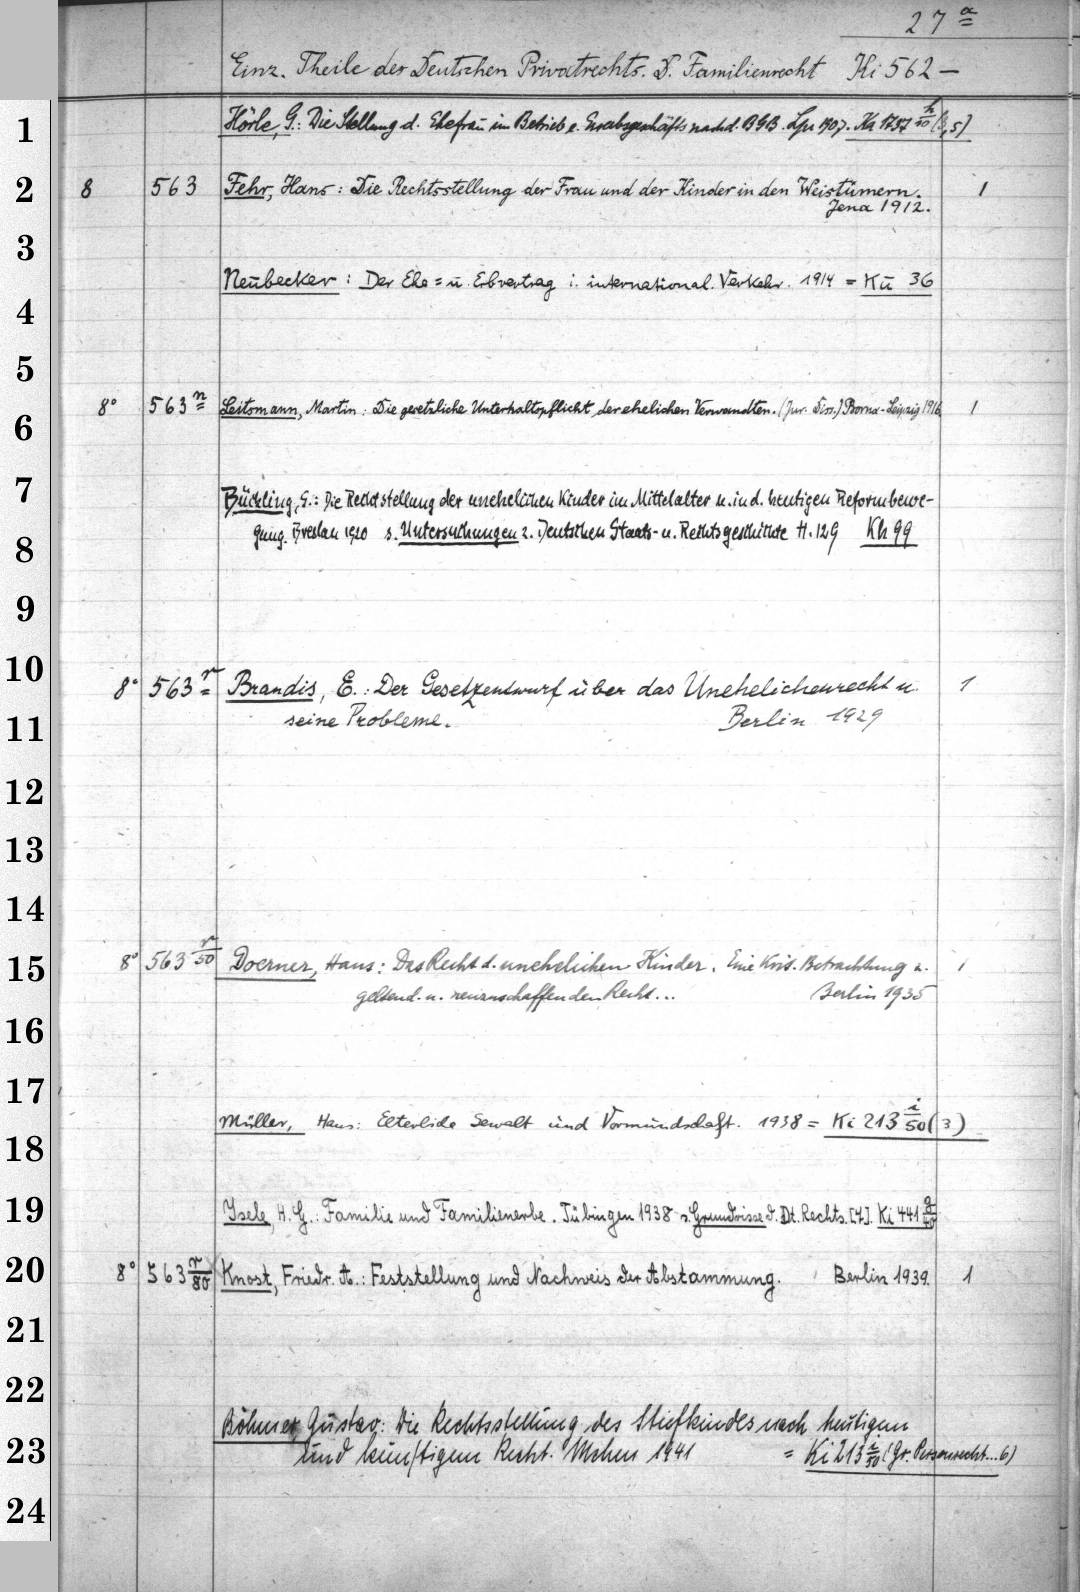 27 a
Einz. Theile der Deutschen Privatrechts. D. Familienrecht Ki 562 —
1 Hörle, G.: Die Stellung d. Ehefrau im Betrieb e. Erwerbsgeschäfts nach d. BGB. Lpz 1907. Ka 1737 h/50 (3,5)
2 8 563 Fehr, Hans: Die Rechtsstellung der Frau und der Kinder in den Weistümern. 1
Jena 1912.
3
Neubecker: Der Ehe= u. Erbvertrag i. international. Verkehr. 1914 = Kü 36
4
5
8° 563 n Leitsmann, Martin: Die gesetzliche Unterhaltspflicht der ehelichen Verwandten. (Jur. Diss.) Borna-Leipzig 1916 1
6
7 Bückling, G.: Die Rechtstellung der unehelichen Kinder im Mittelalter u. in d. heutigen Reformbewe-
8 gung. Breslau 1920 s. Untersuchungen z. Deutschen Staats- u. Rechtsgeschichte H. 129 Kh 99
9
10 8° 563 r Brandis, E.: Der Gesetzentwurf über das Unehelichenrecht u. 1
11 seine Probleme. Berlin 1929
12
13
14
15 8° 563 r/50 Doerner, Hans: Das Recht d. unehelichen Kinder. Eine Krit. Betrachtung z. 1
geltend. u. neuzuschaffenden Recht... Berlin 1935
16
17
Müller, Hans: Elterliche Gewalt und Vormundschaft. 1938 = Ki 213 i/50 (3)
18
19 Isele, H. G.: Familie und Familienerbe. Tübingen 1938 s. Grundrisse d. Dt. Rechts. [4]. Ki 441
20 8° 563 r/80 Knost, Friedr. A.: Feststellung und Nachweis der Abstammung. Berlin 1939. 1
21
22
Böhmer, Gustav: Die Rechtsstellung des Stiefkindes nach heutigem
23 und künftigem Recht. Mchen 1941 = Ki 213 i/50 (Gr. Personenrecht...6)
24